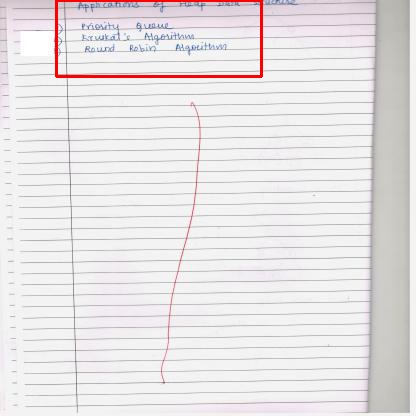 Applications of Heap Data Structure
Priority Queue
Kruskal's Algorithm
Round Robin Algorithm